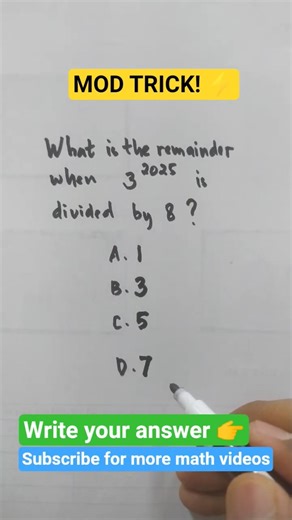 MOD TRICK! ⚡
What is the remainder
when 3^2025 is
divided by 8?
A. 1
B. 3
C. 5
D. 7
Write your answer 👉
Subscribe for more math videos